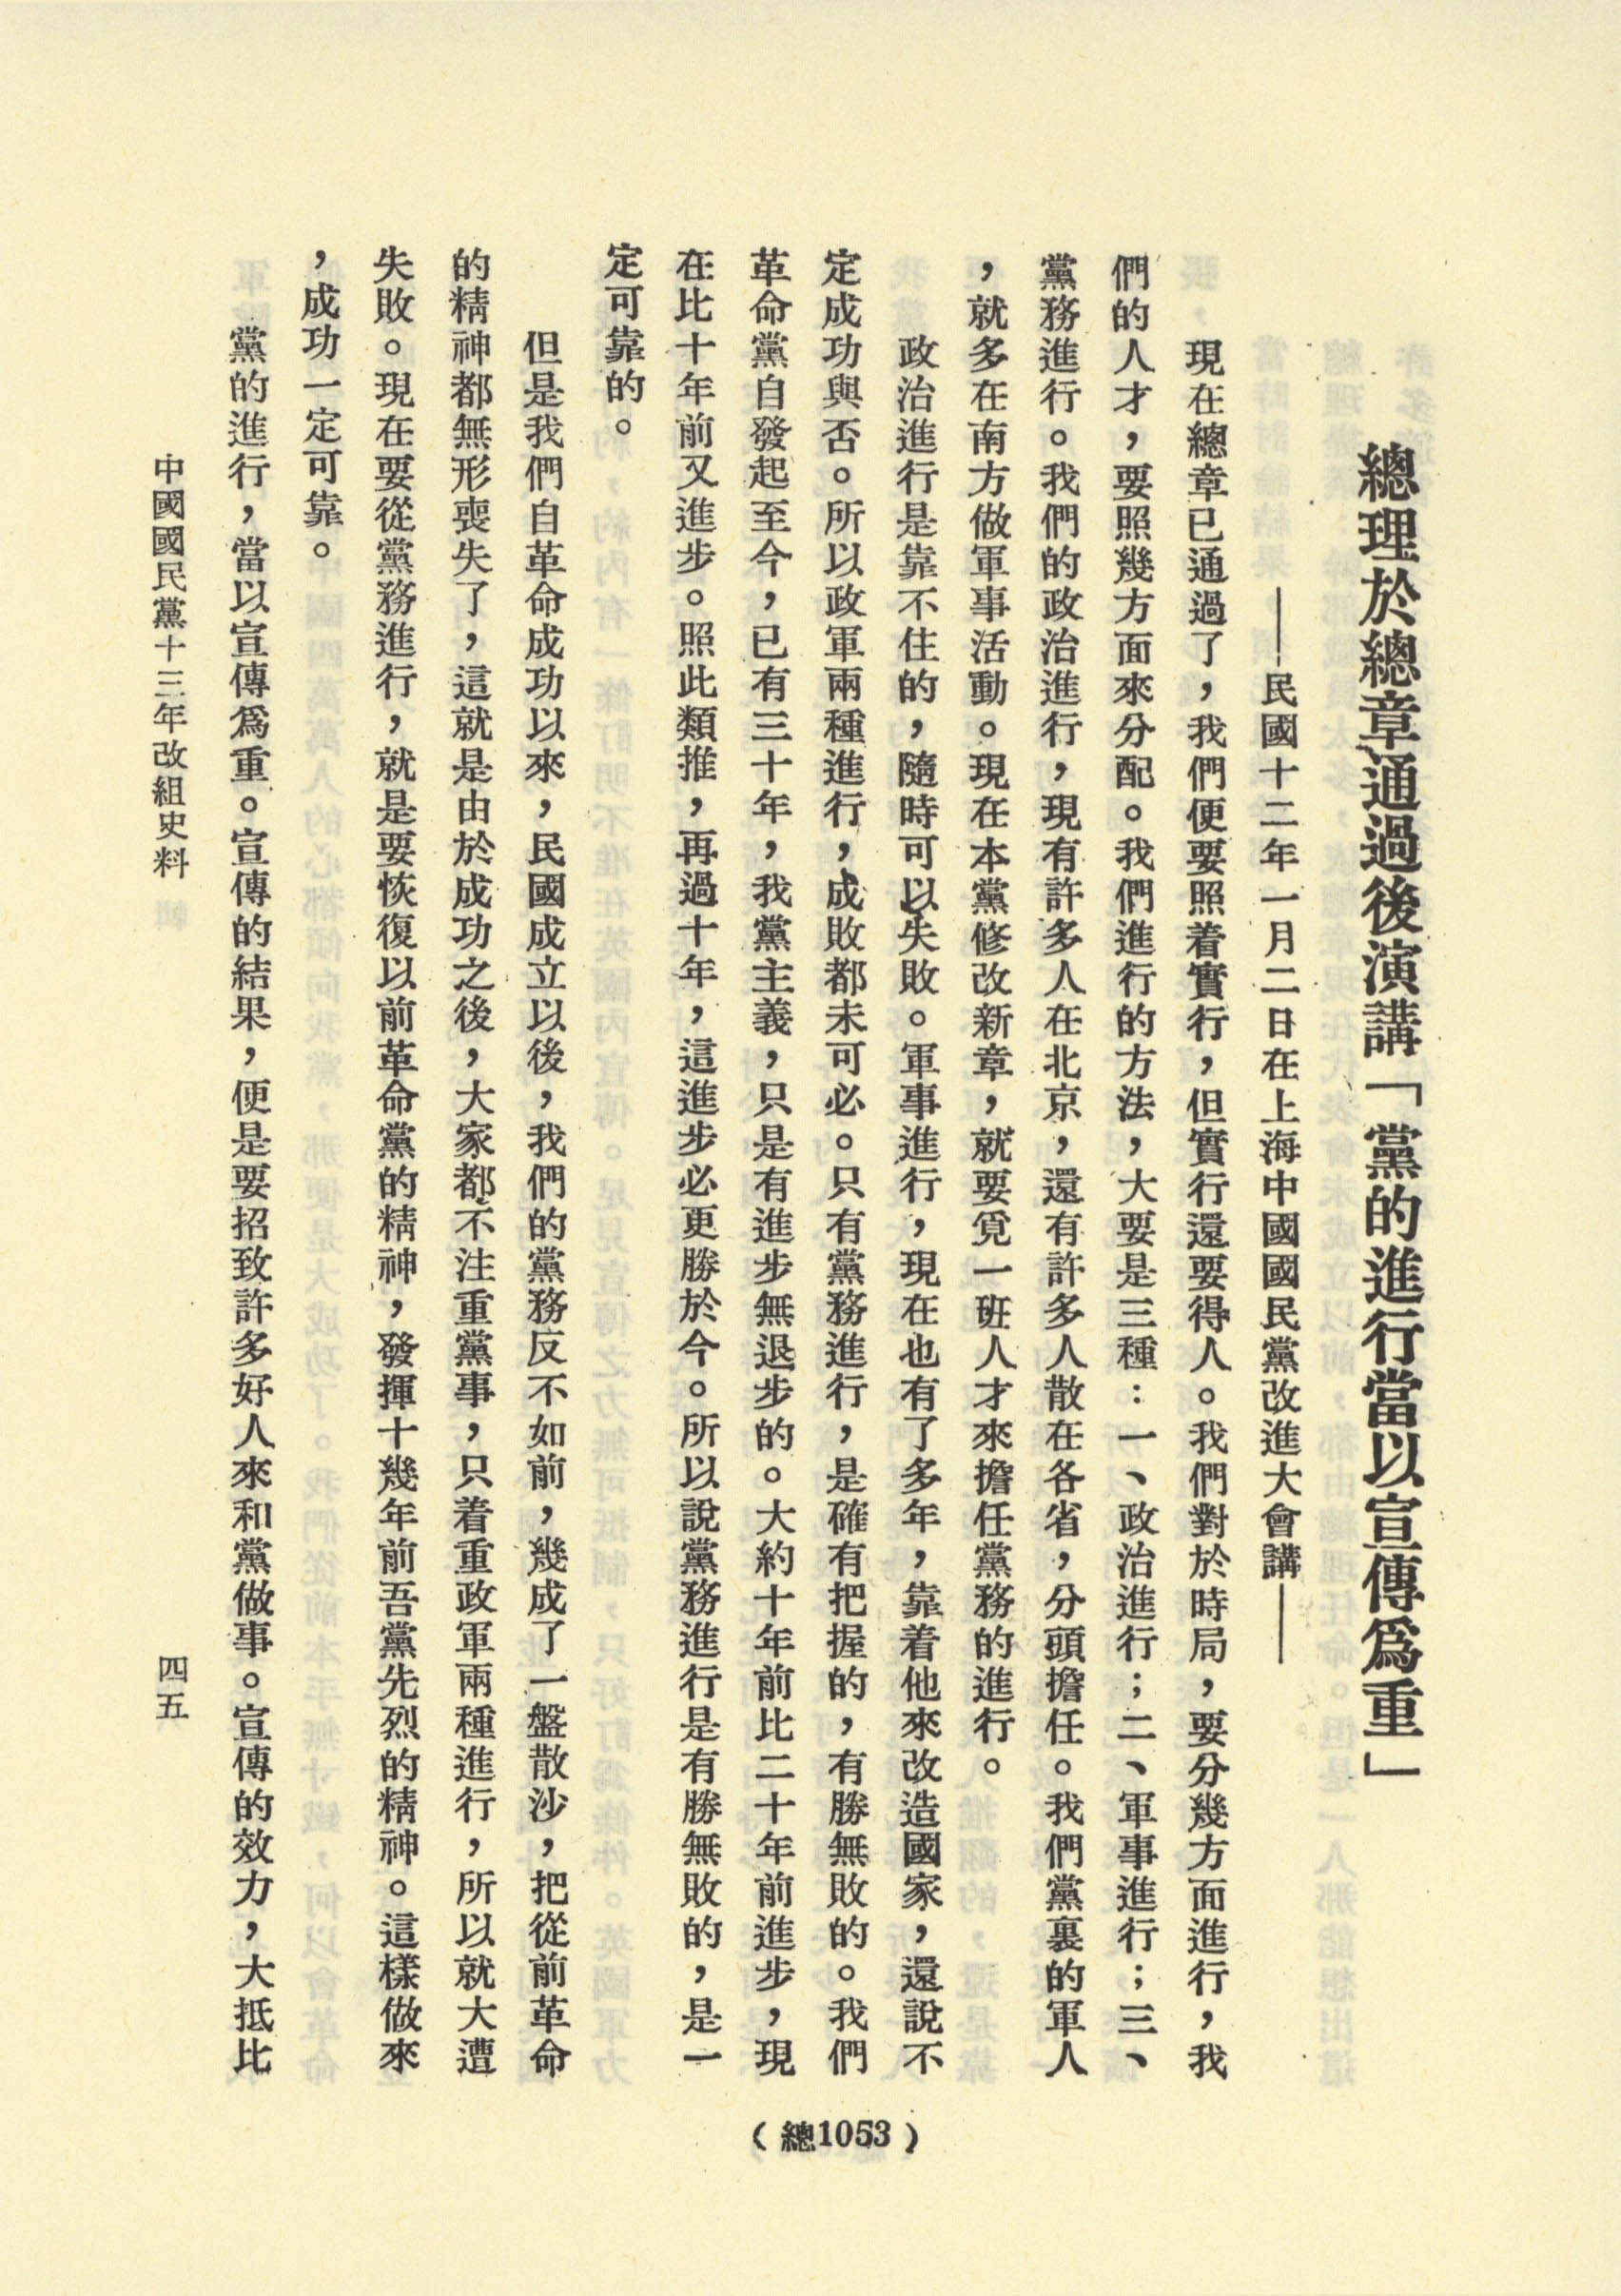 總理於總章通過後演講「黨的進行當以宣傳爲重」
——民國十二年一月二日在上海中國國民黨改進大會講——
現在總章已通過了，我們便要照着實行，但實行還要得人。我們對於時局，要分幾方面進行，我
們的人才，要照幾方面來分配。我們進行的方法，大要是三種：一、政治進行；二、軍事進行；三、
黨務進行。我們的政治進行，現有許多人在北京，還有許多人散在各省，分頭擔任。我們黨裏的軍人
，就多在南方做軍事活動。現在本黨修改新章，就要覓一班人才來擔任黨務的進行。
政治進行是靠不住的，隨時可以失敗。軍事進行，現在也有了多年，靠着他來改造國家，還說不
定成功與否。所以政軍兩種進行，成敗都未可必。只有黨務進行，是確有把握的，有勝無敗的。我們
革命黨自發起至今，已有三十年，我黨主義，只是有進步無退步的。大約十年前比二十年前進步，現
在比十年前又進步。照此類推，再過十年，這進步必更勝於今。所以說黨務進行是有勝無敗的，是一
定可靠的。
但是我們自革命成功以來，民國成立以後，我們的黨務反不如前，幾成了一盤散沙，把從前革命
的精神都無形喪失了，這就是由於成功之後，大家都不注重黨事，只着重政軍兩種進行，所以就大遭
失敗。現在要從黨務進行，就是要恢復以前革命黨的精神，發揮十幾年前吾黨先烈的精神。這樣做來
，成功一定可靠。
黨的進行，當以宣傳爲重。宣傳的結果，便是要招致許多好人來和黨做事。宣傳的效力，大抵比
中國國民黨十三年改組史料
四五
（總1053）